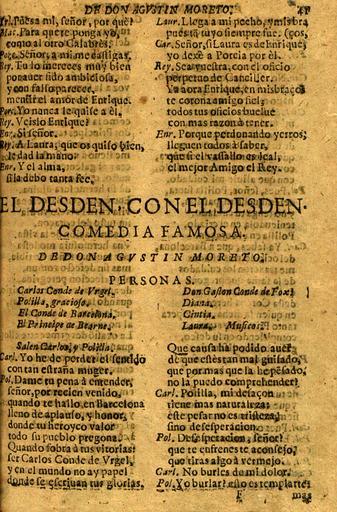 DE DON AGVSTIN MORETO. 41
Irl. Pues a mi, señor, por què?
Mar. Para que te ponga yo,
como al otro Calabrès.
Señor, a mi me castigas,
Rey. Tu lo mereces muy bien
por auer sido ambiciosa,
y con falso parecer,
mentir el amor de Enrique.
Por. Yo nunca le quise a èl.
Rey. Y esso Enrique?
Enr. Si señor.
Rey. A Laura, que os quiso bien,
le dad la mano.
Enr. Y el alma,
si la debo tanta fee.
Laur. Llega a mi pecho, y mis braços,
puesta tuyo siempre fue.
Car. Señor, si Laura es de Enrique,
yo dexè a Porcia por èl.
Rey. Sea vuestra, con el oficio
perpetuo de Canciller.
Y aora Enrique, en mis braços
te corona amigo fiel,
todos tus oficios buelue
con mas razon à tener.
Enr. Porque perdonando yerros,
lleguen todos à saber,
que si el vassallo es leal,
el mejor Amigo el Rey.
EL DESDEN, CON EL DESDEN.
COMEDIA FAMOSA.
DE DON AGVSTIN MORETO.
PERSONAS.
Carlos Conde de Vrgel.
Polilla, gracioso.
El Conde de Barcelona.
El Principe de Bearne.
Don Gaston Conde de Fox.
Diana.
Cintia.
Laura. Musicos.
Salen Carlos, y Polilla.
Carl. Yo he de perder el sentido
con tan estraña muger.
Pol. Dame tu pena à entender,
señor, por recien venido,
quando te hallo en Barcelona
lleno de aplauso, y honor,
donde tu heroyco valor
todo su pueblo pregona.
Quando sobra à tus vitorias
ser Carlos Conde de Vrgel,
y en el mundo no ay papel
donde se escriuan tus glorias.
Que causa ha podido auer
de que estès tan mal guisado,
que por mas que la he pesado,
no la puedo comprehender?
Carl. Polilla, mi desaçon
tiene mas naturaleza:
este pesar no es tristeza,
sino desesperacion.
Pol. Desesperacion, señor?
que te enfrenes te aconsejo,
que tiras algo à vermejo.
Carl. No burles de mi dolor.
Pol. Yo burlar? esso es templarte:
F mas